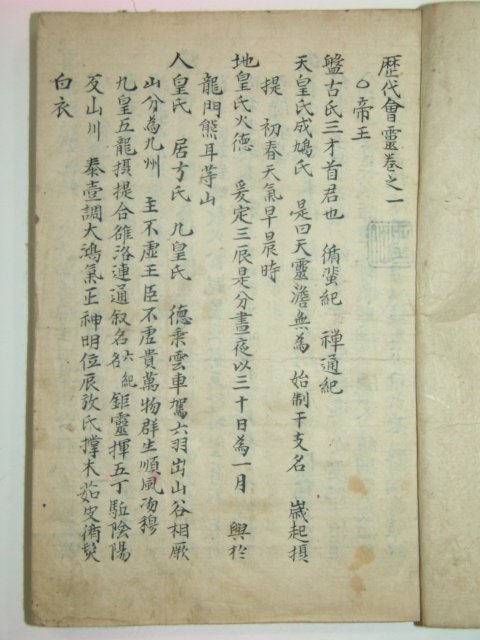 歷代會靈卷之一
○帝王
盤古氏三才首君也 循蜚紀 禅通紀
天皇氏成鳩氏 是曰天靈澹無為 始制干支名 歲起攝
提 初春天氣早晨時
地皇氏火德 爰定三辰是分晝夜以三十日為一月 興於
龍門熊耳等山
人皇氏 居方氏 九皇氏 德乘雲車駕六羽出山谷相厥
山分為九州 主不虛王臣不虛貴萬物群生順風沕穆
九皇五龍攝提合雒洛連通叙名名六紀鉅靈揮五丁駈陰陽
反山川 泰壹調大鴻氣正神明位辰放氏撑木茹皮
白衣